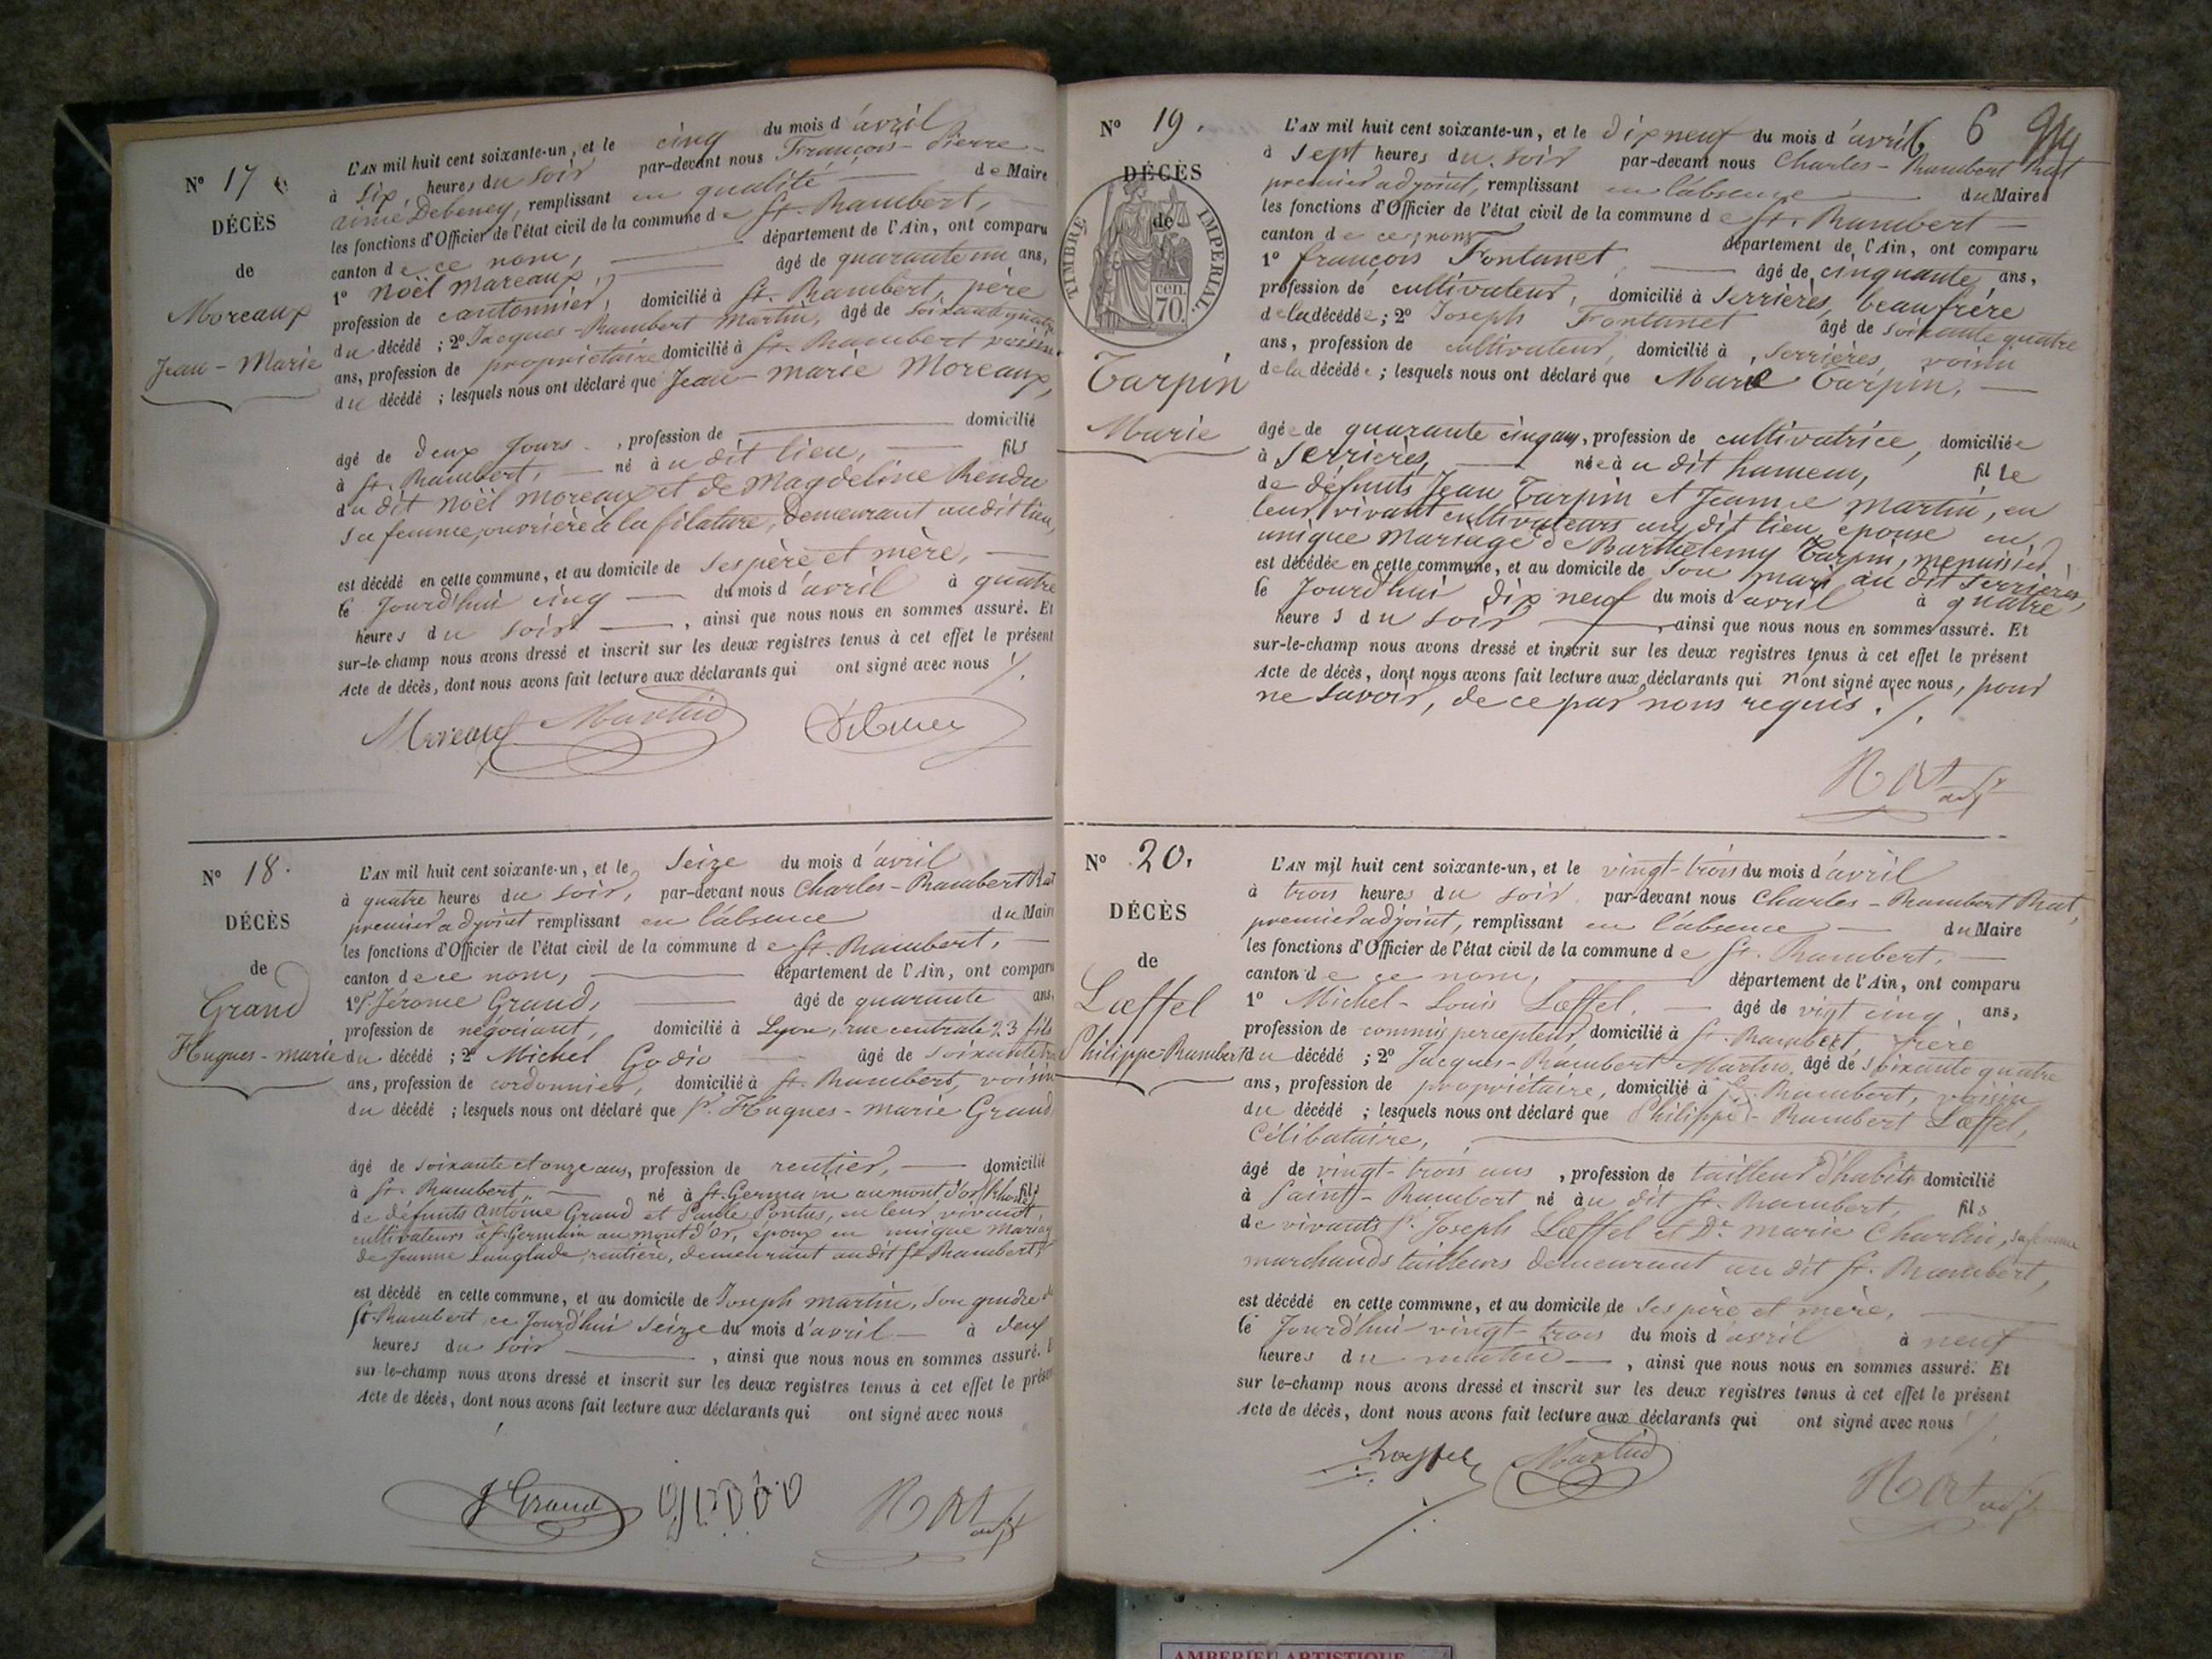 N° 17
DÉCÈS
de
Moreaux
Jean-Marie
L'AN mil huit cent soixante-un, et le cinq du mois d'avril
à six heures du soir par-devant nous François-Pierre-
aimé Debeney, remplissant en qualité de Maire
les fonctions d'Officier de l'état civil de la commune de St. Rambert,
canton de ce nom, département de l'Ain, ont comparu
1° Noël Mareaux, âgé de quarante un ans,
profession de cantonnier, domicilié à St. Rambert, père
du décédé ; 2° Jacques-Rambert Martin, âgé de soixante quatre
ans, profession de propriétaire domicilié à St. Rambert voisin
du décédé ; lesquels nous ont déclaré que Jean-marie Moreaux,
âgé de deux jours, profession de domicilié
à St. Rambert, né au dit lieu, fils
du dit Noël Moreaux et de Magdeline Rendu
sa femme, ouvrière à la filature, demeurant audit lieu,
est décédé en cette commune, et au domicile de ses père et mère,
le jourd'hui cinq du mois d'avril à quatre
heures du soir, ainsi que nous nous en sommes assuré. Et
sur-le-champ nous avons dressé et inscrit sur les deux registres tenus à cet effet le présent
Acte de décès, dont nous avons fait lecture aux déclarants qui ont signé avec nous ./.
Moreaux Martin Debeney
N° 18.
DÉCÈS
de
Grand
Hugues-marie
L'AN mil huit cent soixante-un, et le seize du mois d'avril
à quatre heures du soir, par-devant nous Charles-Rambert Rat
premier adjoint remplissant en l'absence du Maire
les fonctions d'Officier de l'état civil de la commune de St. Rambert,
canton de ce nom, département de l'Ain, ont comparu
1° Sr. Jérome Grand, âgé de quarante ans,
profession de négociant, domicilié à Lyon, rue centrale 23 fils
du décédé ; 2° Michel Godio âgé de
ans, profession de cordonnier, domicilié à St. Rambert, voisin
du décédé ; lesquels nous ont déclaré que Sr. Hugues-marie Grand
âgé de soixante et onze ans, profession de rentier, domicilié
à St. Rambert, né à St. Germain au mont d'or (Rhône) fils
de défunts Antoine Grand et Paule Pontus, en leur vivant
cultivateurs à St. Germain au mont d'Or, époux en unique mariage
de Jeanne Langlade, rentière, demeurant audit St. Rambert,
est décédé en cette commune, et au domicile de Joseph martin, son gendre
St. Rambert, ce jourd'hui seize du mois d'avril à deux
heures du soir, ainsi que nous nous en sommes assuré.
sur-le-champ nous avons dressé et inscrit sur les deux registres tenus à cet effet le présent
Acte de décès, dont nous avons fait lecture aux déclarants qui ont signé avec nous
J Grand godio R Rat adj
6
N° 19.
DÉCÈS
de
TIMBRE IMPERIAL.
cen.
70.
Tarpin
Marie
L'AN mil huit cent soixante-un, et le dix neuf du mois d'avril
à sept heures du soir par-devant nous Charles-Rambert Rat
premier adjoint, remplissant en l'absence du Maire
les fonctions d'Officier de l'état civil de la commune de St. Rambert
canton de ce nom département de l'Ain, ont comparu
1° françois Fontanet, âgé de cinquante ans,
profession de cultivateur, domicilié à Serrières, beau frère
de la décédée ; 2° Joseph Fontanet âgé de soixante quatre
ans, profession de cultivateur, domicilié à Serrières voisin
de la décédée ; lesquels nous ont déclaré que Marie Tarpin,
âgée de quarante cinq ans, profession de cultivatrice, domiciliée
à Serrières, née au dit hameau, fille
de défunts Jean Tarpin et Jeanne Martin, en
leur vivant cultivateurs au dit lieu, épouse en
unique mariage de Barthélemy Tarpin, menuisier,
est décédée en cette commune, et au domicile de son mari au dit Serrières,
le jourd'hui dix neuf du mois d'avril à quatre
heures du soir, ainsi que nous nous en sommes assuré. Et
sur-le-champ nous avons dressé et inscrit sur les deux registres tenus à cet effet le présent
Acte de décès, dont nous avons fait lecture aux déclarants qui n'ont signé avec nous, pour
ne savoir, de ce par nous requis. ./.
R Rat adj
N° 20.
DÉCÈS
de
Lœffel
Philippe Rambert
L'AN mil huit cent soixante-un, et le vingt-trois du mois d'avril
à trois heures du soir par-devant nous Charles-Rambert Rat,
premier adjoint, remplissant en l'absence du Maire
les fonctions d'Officier de l'état civil de la commune de St. Rambert,
canton de ce nom, département de l'Ain, ont comparu
1° Michel-Louis Lœffel, âgé de vigt cinq ans,
profession de commis percepteur domicilié à St. Rambert frère
du décédé ; 2° Jacques-Rambert Martin, âgé de soixante quatre
ans, profession de propriétaire, domicilié à St. Rambert, voisin
du décédé ; lesquels nous ont déclaré que Philippe-Rambert Lœffel,
célibataire,
âgé de vingt-trois ans, profession de tailleur d'habits domicilié
à Saint-Rambert né au dit St. Rambert, fils
de vivants Sr. Joseph Lœffel et De. marie Charlin, sa femme
marchands tailleurs demeurant au dit St. Rambert,
est décédé en cette commune, et au domicile de ses père et mère,
le jourd'hui vingt-trois du mois d'avril à neuf
heures du matin, ainsi que nous nous en sommes assuré. Et
sur le-champ nous avons dressé et inscrit sur les deux registres tenus à cet effet le présent
Acte de décès, dont nous avons fait lecture aux déclarants qui ont signé avec nous ./.
Loeffel Martin R Rat adj
AMBERIEU ARTISTIQUE